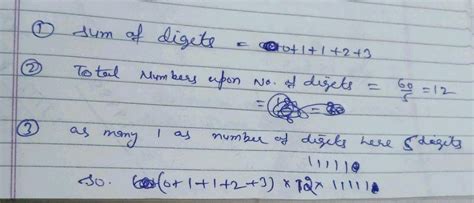 ① Sum of digets = 0+1+1+2+3
② Total Numbers upon No. of digets = 60/5 = 12
=
③ as many 1 as number of digets here 5 digets
11111
So. (0+1+1+2+3) × 12 × 11111